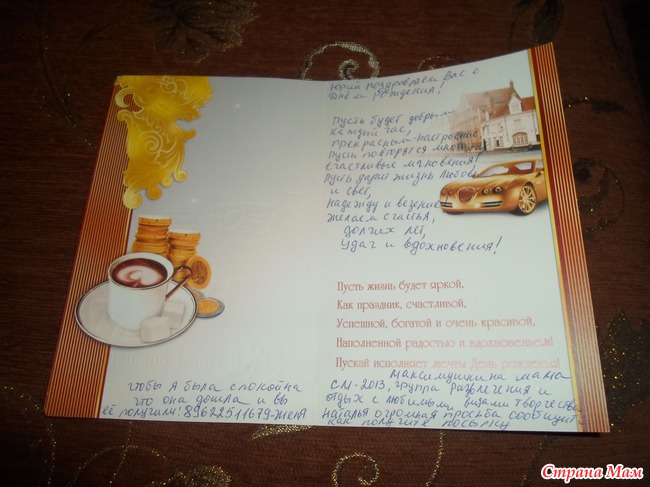 Юрий поздравляем вас с
Днём рождения!
Пусть будет добрым
каждый час,
прекрасным настроение
Пусть повторятся много
счастливые мгновения!
Пусть дарит жизнь любовь
и свет,
надежду и везение
желаем счастья,
долгих лет,
удач и вдохновения!
Пусть жизнь будет яркой,
Как праздник, счастливой,
Успешной, богатой и очень красивой,
Наполненной радостью и вдохновеньем!
Пускай исполняет мечты День рожденья!
мама
СМ-2013, группа развлечения и
отдых с любимыми видами творчества
Наталья огромная просьба сообщите
как получите посылку
чтобы я была спокойна
что она дошла и вы
её получили! 89622511679-Женя
Страна Мам